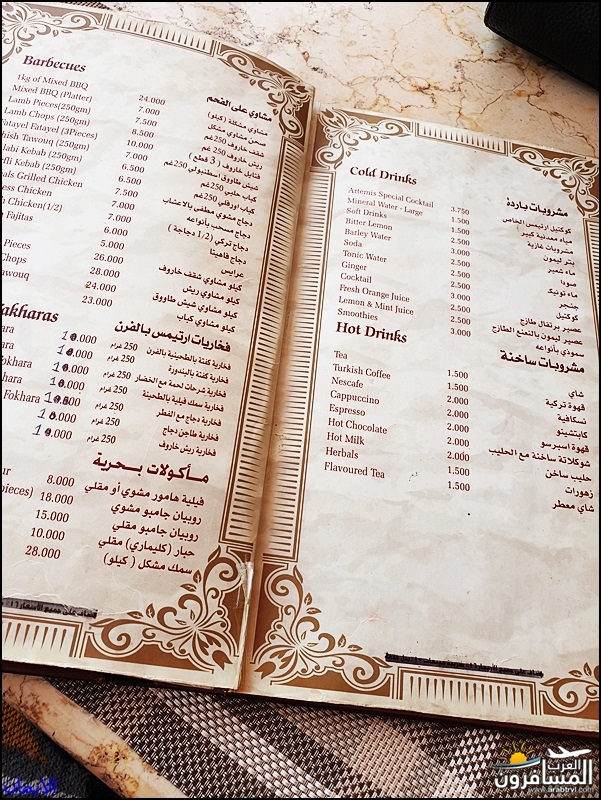 Barbecues
مشاوي على الفحم
1kg of Mixed BBQ 24.000 مشاوي مشكلة (كيلو)
Mixed BBQ (Platter) 7.000 صحن مشاوي مشكل
Lamb Pieces(250gm) 7.500 شقف خاروف 250غم
Lamb Chops (250gm) 8.500 ريش خاروف 250غم
Fatayel Fatayel (3Pieces) 10.000 فتايل خاروف ( 3 قطع )
hish Tawouq (250gm) 7.000 شيش طاووق اسطنبولي 250غم
labi Kebab (250gm) 6.500 كباب حلبي 250غم
fli Kebab (250gm) 6.500 كباب اورفلي 250غم
als Grilled Chicken 7.500 دجاج مشوي مطفى بالاعشاب
ess Chicken 7.000 دجاج مسحب بأنواعه
Chicken(1/2) 6.000 دجاج تركي (1/2 دجاجة )
Fajitas 7.000 دجاج فاهيتا
5.000 عرايس
Pieces 26.000 كيلو مشاوي شقف خاروف
Chops 28.000 كيلو مشاوي ريش
awouq 24.000 كيلو مشاوي شيش طاووق
23.000 كيلو مشاوي كباب
akharas
فخاريات ارتيمس بالفرن
ara 10.000 250 غرام فخارية كفتة بالطحينية بالفرن
ara 10.000 250 غرام فخارية كفتة بالبندورة
okhara 10.000 250 غرام فخارية شرحات لحمة مع الخضار
hara 10.000 250 غرام فخارية سمك فيلية بالطحينة
Fokhara 250 غرام فخارية دجاج مع الفطر
10.000 250 غرام فخارية طاجن دجاج
10.000 250 غرام فخارية ريش خاروف
مأكولات بحرية
ur 8.000 فيلية هامور مشوي أو مقلي
pieces) 18.000 روبيان جامبو مشوي
15.000 روبيان جامبو مقلي
10.000 حبار (كليماري) مقلي
28.000 سمك مشكل ( كيلو)
Cold Drinks
مشروبات باردة
Artemis Special Cocktail 3.750 كوكتيل ارتيمس الخاص
Mineral Water - Large 2.500 مياه معدنية كبير
Soft Drinks 2.500 مشروبات غازية
Bitter Lemon 2.500 بتر ليمون
Barley Water 2.500 ماء شعير
Soda 2.000 صودا
Tonic Water 2.500 ماء تونيك
Ginger 2.500 جنجر
Cocktail 2.500 كوكتيل
Fresh Orange Juice 3.000 عصير برتقال طازج
Lemon & Mint Juice 2.500 عصير ليمون بالنعنع الطازج
Smoothies 3.000 سموذي بأنواعه
Hot Drinks
مشروبات ساخنة
Tea 1.500 شاي
Turkish Coffee 1.500 قهوة تركية
Nescafe 2.000 نسكافية
Cappuccino 2.000 كابتشينو
Espresso 2.000 قهوة اسبرسو
Hot Chocolate 2.000 شوكلاتة ساخنة مع الحليب
Hot Milk 2.000 حليب ساخن
Herbals 1.500 زهورات
Flavoured Tea 1.500 شاي معطر
العرب
المسافرون
www.arabtrvl.com